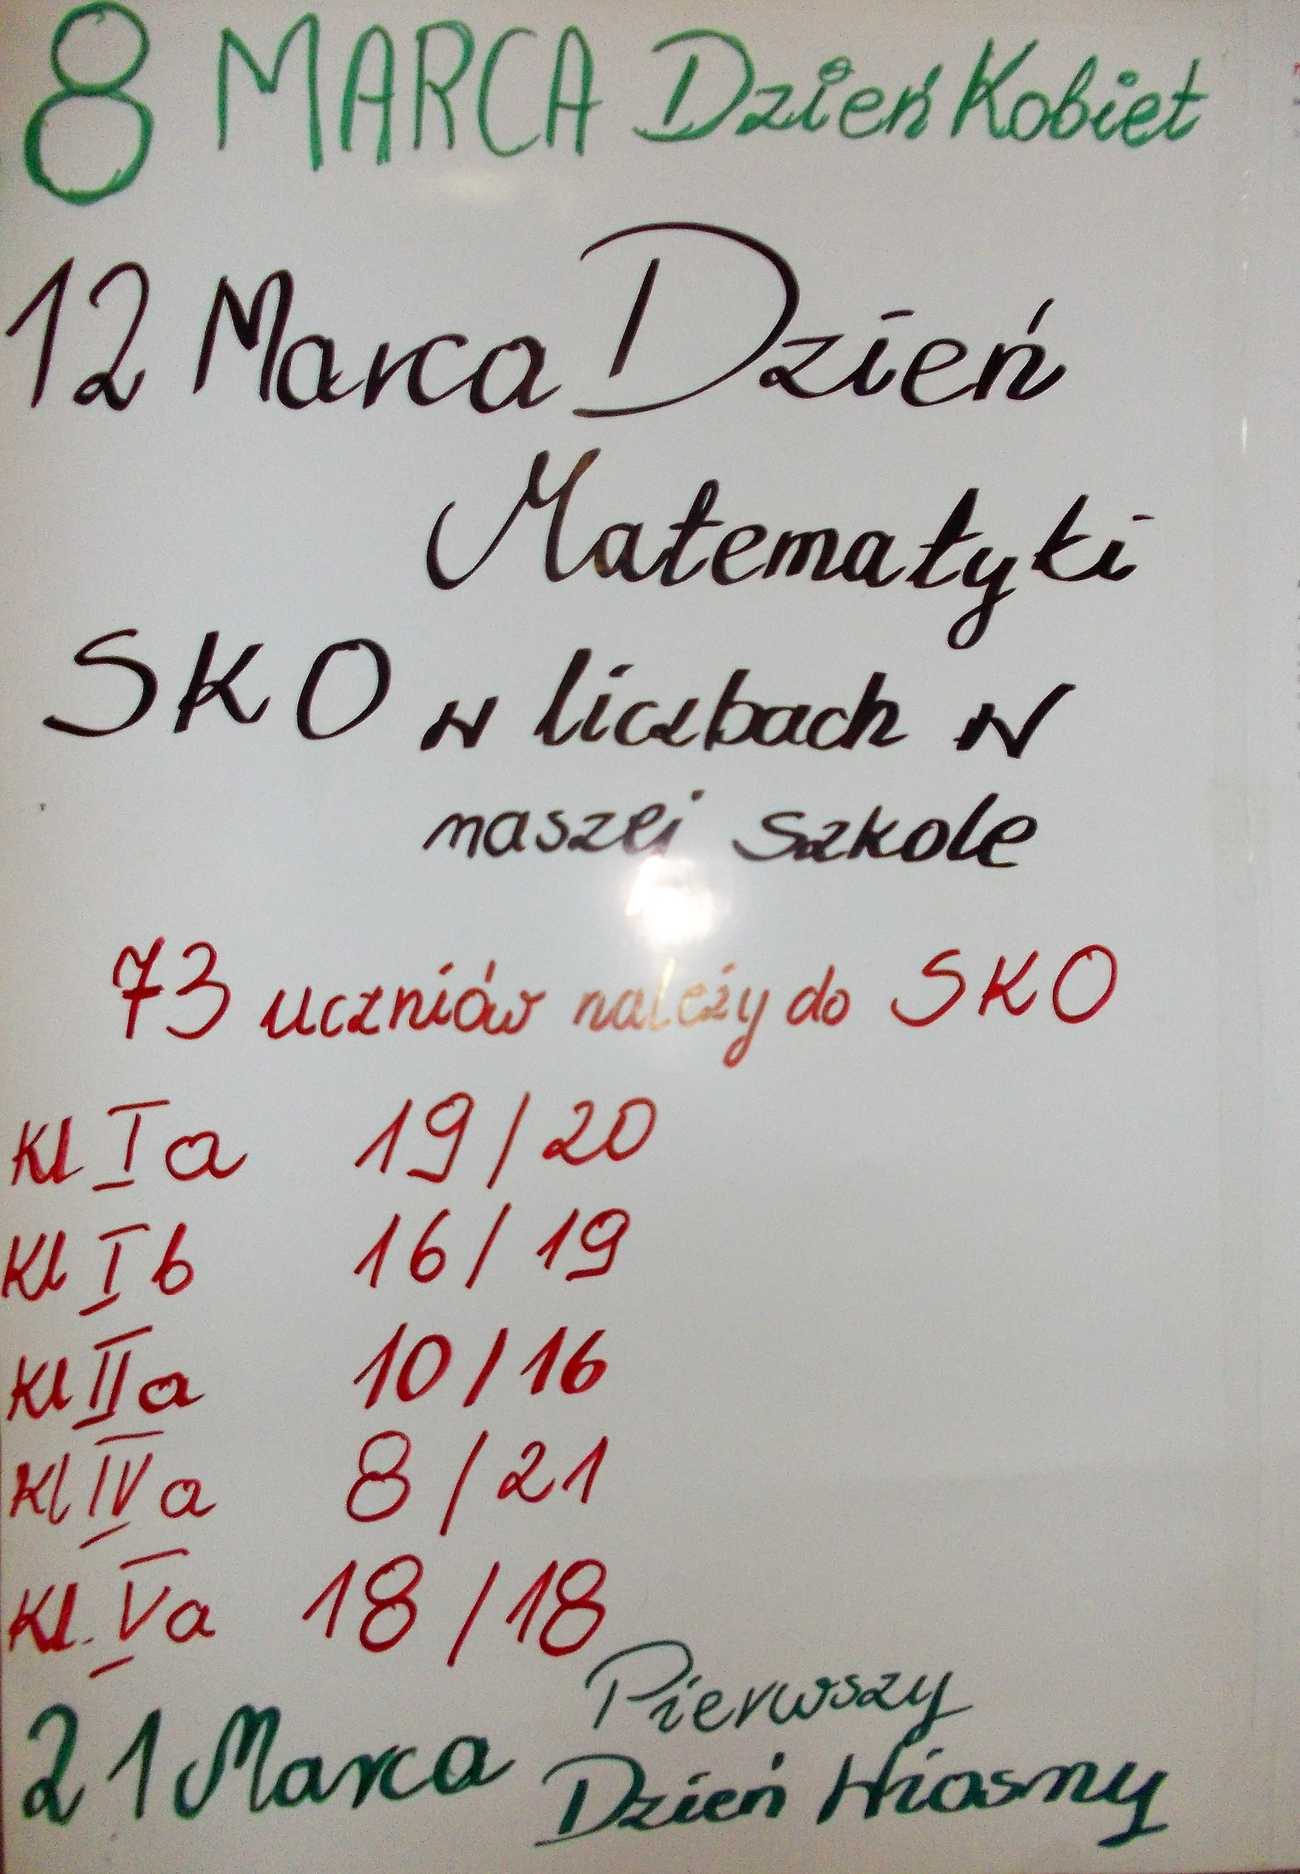 8 MARCA Dzień Kobiet
12 Marca Dzień
Matematyki
SKO w liczbach w
naszej szkole
73 uczniów należy do SKO
kl Ia 19/20
kl Ib 16/19
kl IIa 10/16
kl IVa 8/21
kl. Va 18/18
21 Marca Pierwszy
Dzień Wiosny